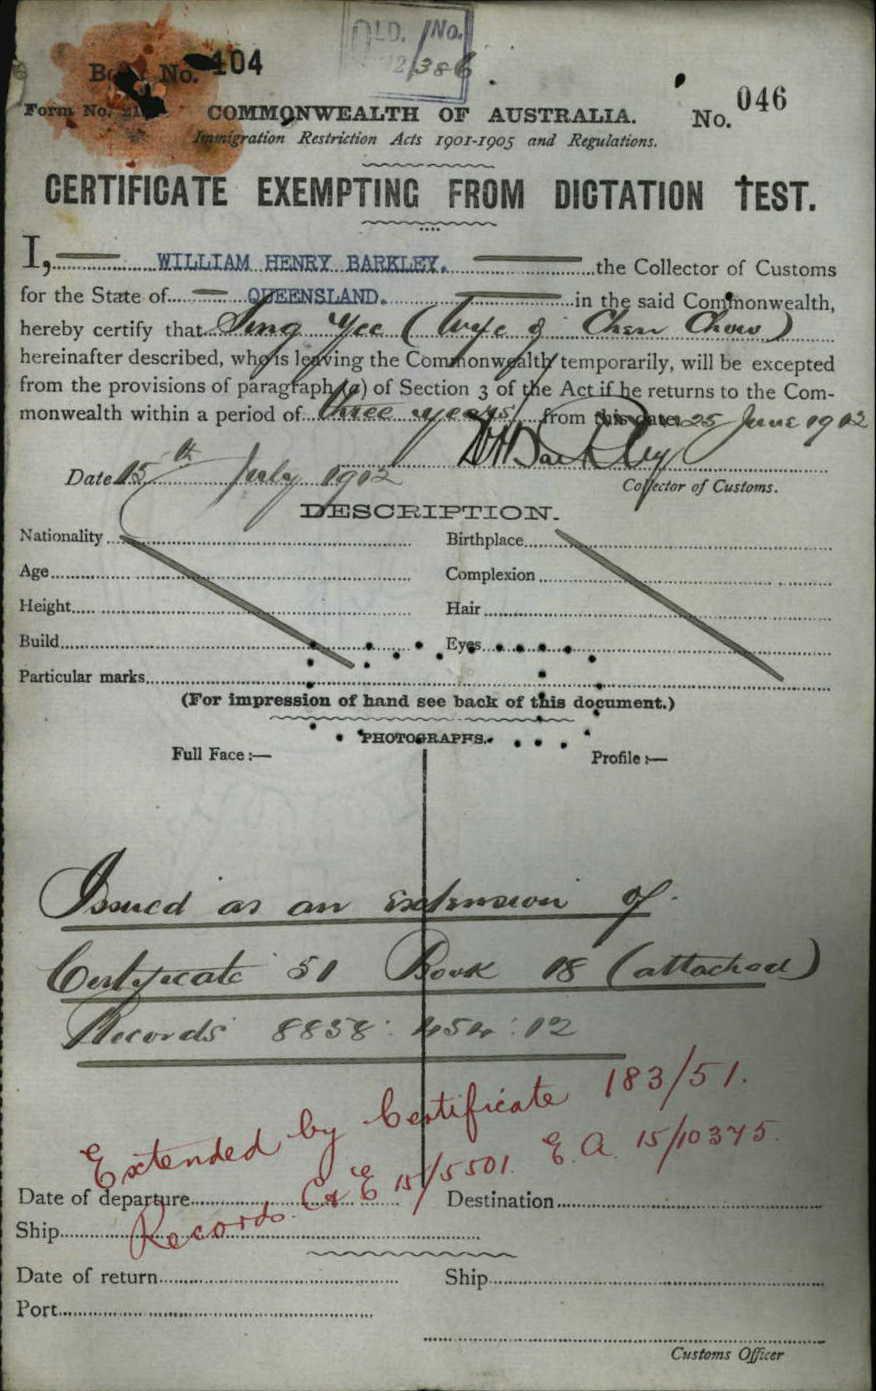 OLD. No.
386
Book No. 104
Form No. 21
COMMONWEALTH OF AUSTRALIA. No. 046
Immigration Restriction Acts 1901-1905 and Regulations.
CERTIFICATE EXEMPTING FROM DICTATION TEST.
I, WILLIAM HENRY BARKLEY. the Collector of Customs
for the State of QUEENSLAND. in the said Commonwealth,
hereby certify that Sing Yee (Wife of Chen Chow)
hereinafter described, who is leaving the Commonwealth temporarily, will be excepted
from the provisions of paragraph (a) of Section 3 of the Act if he returns to the Com-
monwealth within a period of three years from this date. 25 June 1912
WHBarkley
Date 15th July 1912 Collector of Customs.
DESCRIPTION.
Nationality Birthplace
Age Complexion
Height Hair
Build Eyes
Particular marks
(For impression of hand see back of this document.)
PHOTOGRAPHS.
Full Face :— Profile :—
Issued as an extension of
Certificate 51 Book 18 (attached)
Records 8858
Extended by Certificate 183/51.
Records C & E 15/5501. E.A. 15/10375.
Date of departure Destination
Ship
Date of return Ship
Port
Customs Officer